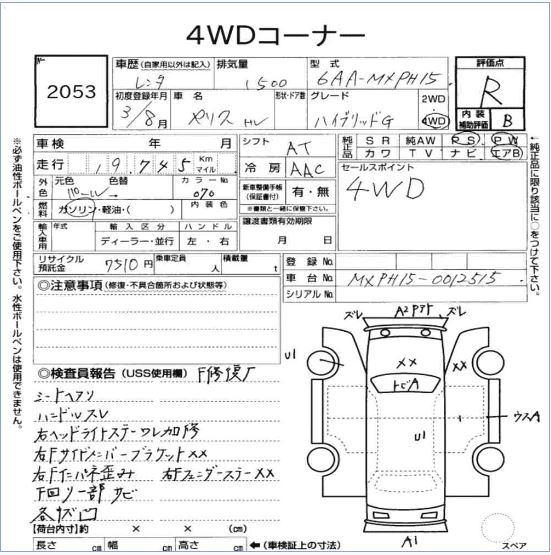 4WDコーナー
2053
車歴 (自家用以外は記入) レンタ
排気量 1500
型式 6AA-MXPH15
評価点 R
内装補助評価 B
初度登録年月 3/8月
車名 ヤリス HV
形状・ドア数
グレード ハイブリッドG
2WD
4WD
車検 年 月
シフト AT
純正品 SR 純AW PS PW
カワ TV ナビ エアB
走行 19,745 Km マイル
冷房 AAC
セールスポイント
4WD
外色 元色 色替
カラーNo 070
新車整備手帳(保証書付) 有・無
※書類と一緒に保管下さい。
燃料 ガソリン・軽油・( )
内装色
譲渡書類有効期限
月 日
輸入車用 年式 輸入区分 ハンドル
ディーラー・並行 左・右
リサイクル預託金 7510円
乗車定員 人
積載量 t
登録No.
車台No. MXPH15-0012515
シリアルNo.
◎注意事項 (修復・不具合箇所および状態等)
◎検査員報告 (USS使用欄) F修復有
シートヘアリ
ハンドルスレ
右ヘッドライトステーワレ加修
右Fサイドメンバーブラケット××
右Fインパネ歪み 右Fフェンダーステー××
下回り一部サビ
各キズ凹
【荷台内寸】約 × × (cm)
長さ cm 幅 cm 高さ cm ←(車検証上の寸法)
※必ず油性ボールペンをご使用下さい。水性ボールペンは使用できません。
←純正品に限り該当に○をつけて下さい。
ズレ A2 ズレ
U1
××
××
トビA
U1
ウスA
A1
スペア